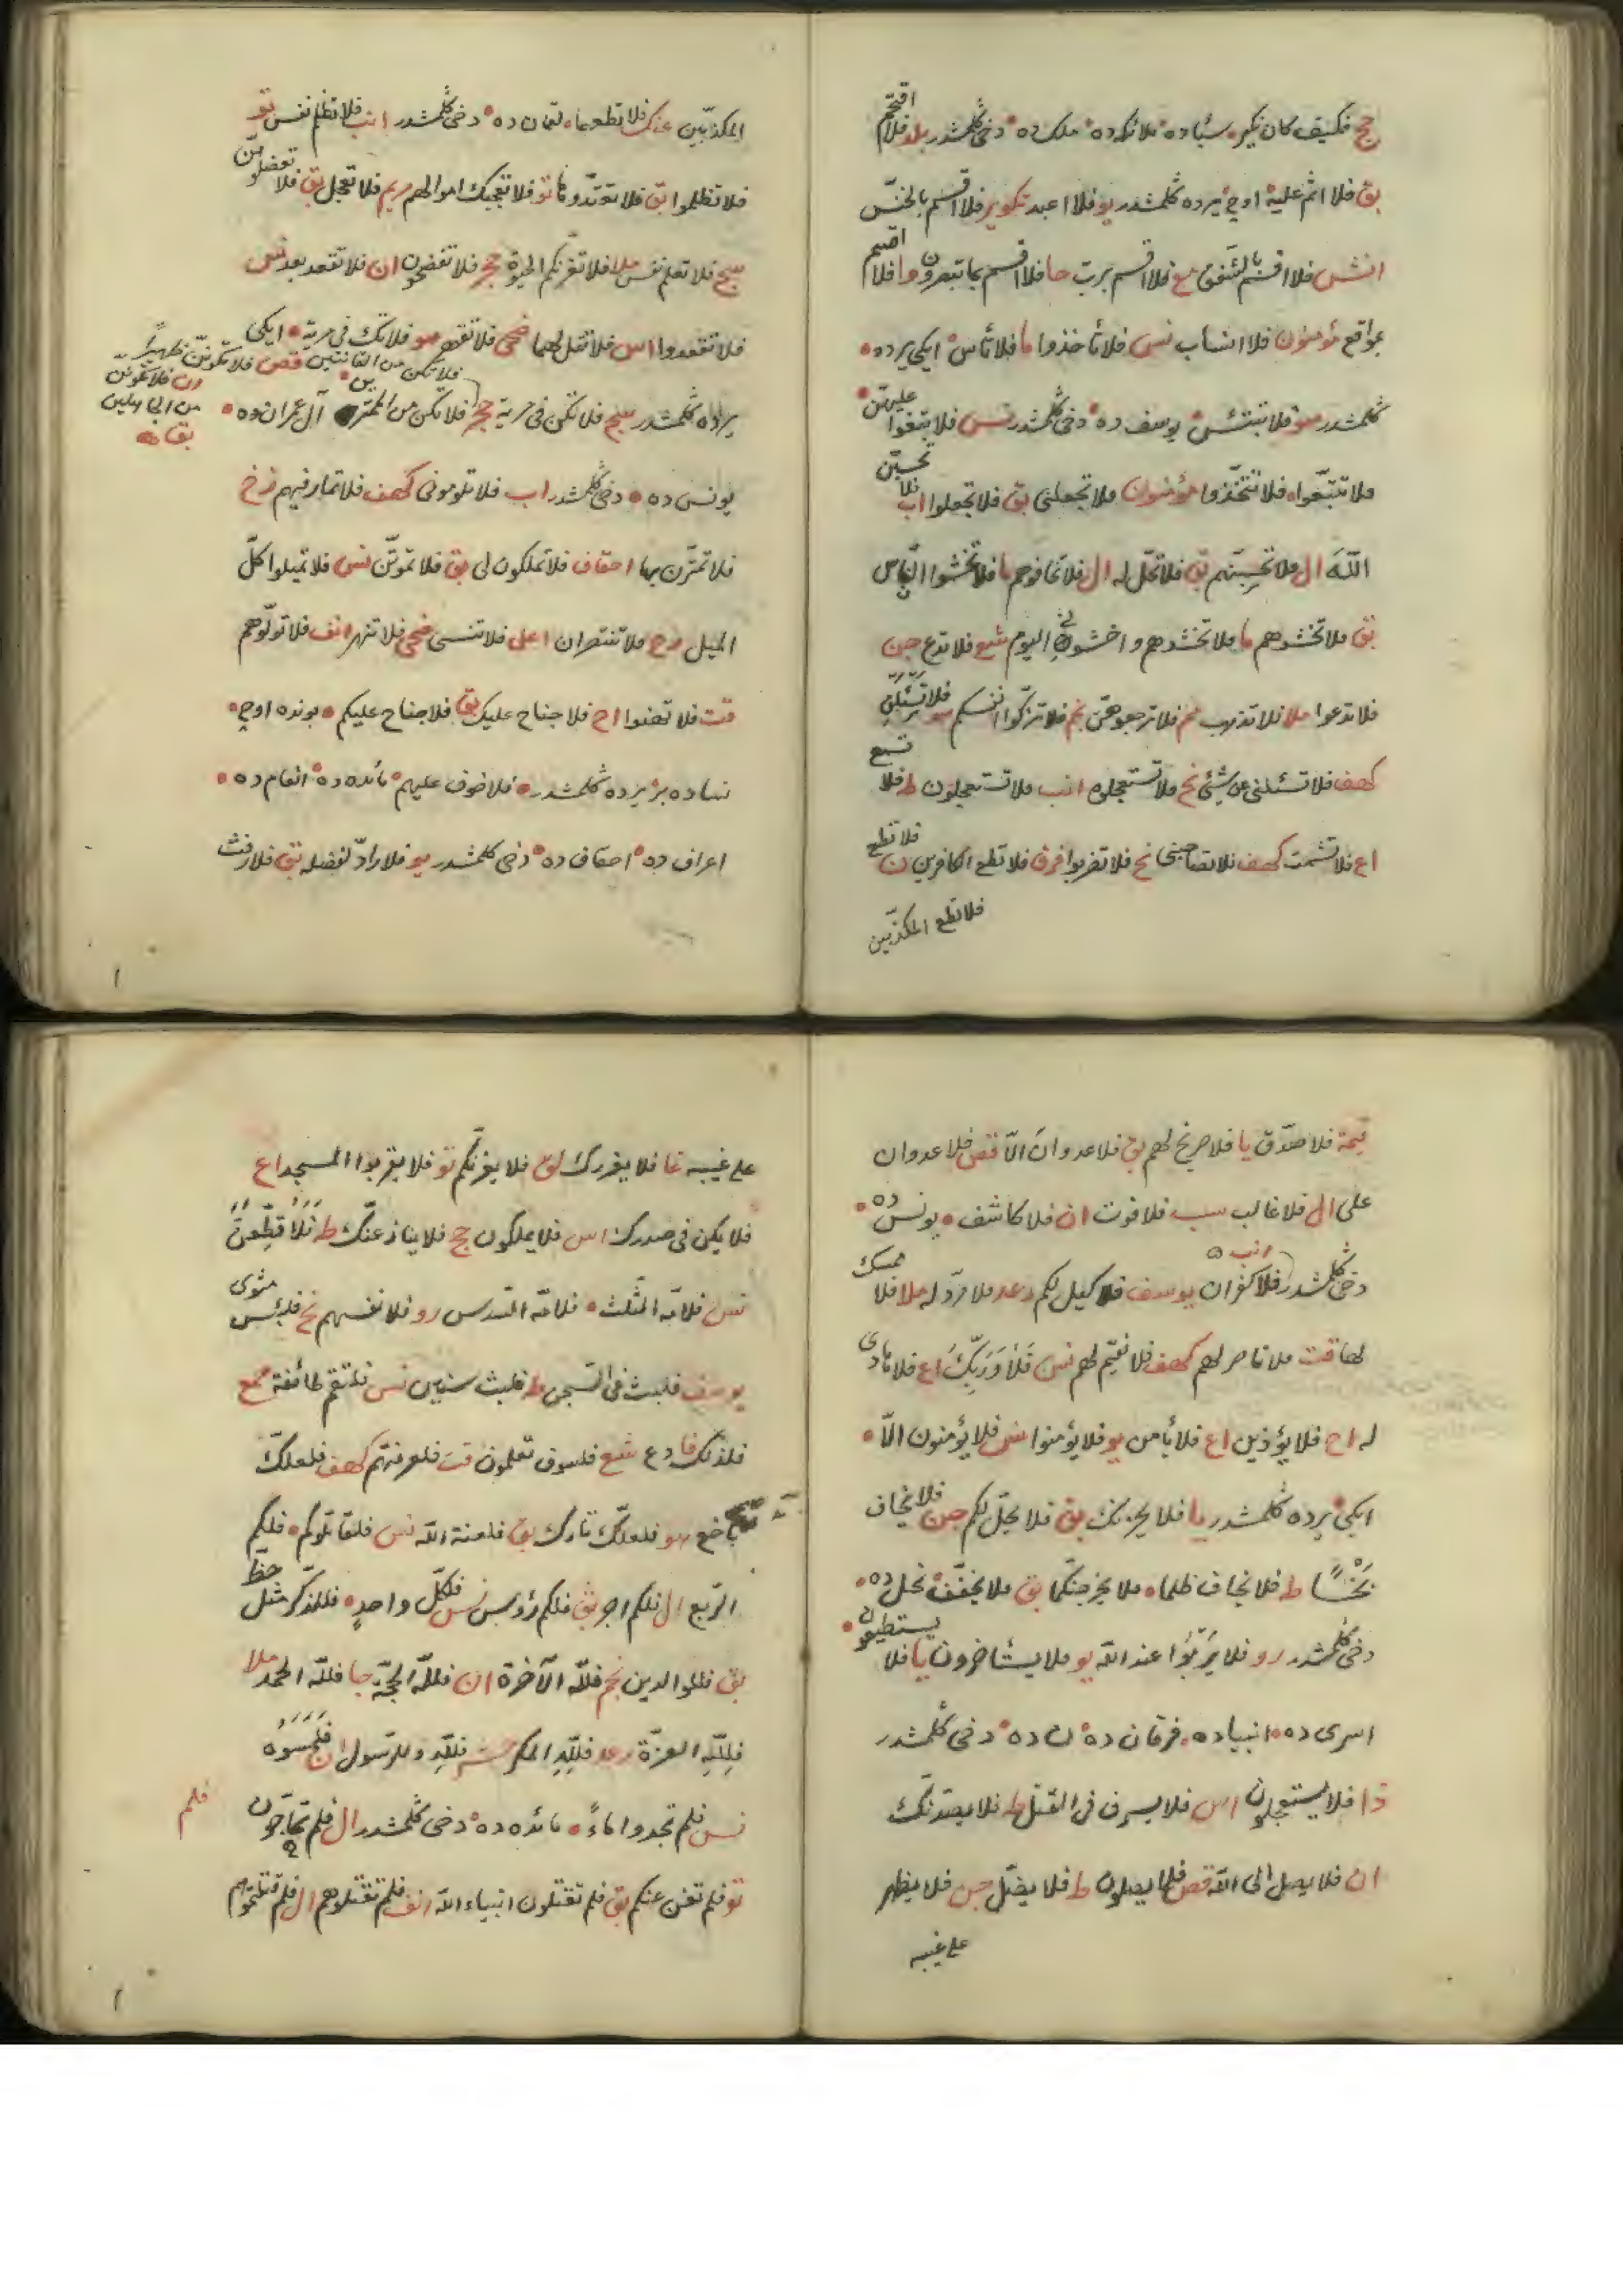 حج فكيف كان نكير • سبأ ده • ملائكه ده • ملك ده • دخى گلمشدر بلد فلا اقتحم
بق فلا اثم عليه • اوچ يرده گلمشدر يو فلا اعبد تكوير فلا اقسم بالخنس
انش فلا اقسم بالشفق مع فلا اقسم برب حا فلا اقسم بما تبصرون وا فلا اقسم
بمواقع مؤمنون فلا انساب نس فلا تأخذوا ما فلا تأس • ايكى يرده •
گلمشدر هو فلا تبتئس • يوسف ده • دخى گلمشدر نس فلا تبغوا عليهن •
فلا تتبعوا • فلا تتخذوا مؤمنون فلا تجعلنى بق فلا تجعلوا اب فلا تحسبن
الله ال فلا تحسبنهم بق فلا تحل له ال فلا تخافوهم ما فلا تخشوا الناس
بق فلا تخشوهم ما فلا تخشوهم واخشون اليوم شع فلا تدع جن
فلا تدعوا ملا فلا تذهب مم فلا ترجعوهن نجم فلا تزكوا انفسكم هو فلا تسئلن
كهف فلا تسئلنى عن شئ نح فلا تستعجلوه انب فلا تستعجلون ط فلا تسمع
اع فلا تشمت كهف فلا تصاحبنى نح فلا تضربوا فرق فلا تطع الكافرين ن فلا تطع
فلا تطع المكذبين
المكذبين عنك فلا تطعهما • لقمان ده • دخى گلمشدر انب فلا تظلم نفس تو
فلا تظلموا بق فلا تعتدوها تو فلا تعجبك اموالهم مريم فلا تعجل بق فلا تعضلوهن
سج فلا تعلم نفس ملا فلا تغرنكم الحيوة حجر فلا تفضحون ان فلا تقعد بعد نس
فلا تقعدوا اس فلا تقل لهما ضحى فلا تقهر هو فلا تك فى مرية • ايكى
يرده گلمشدر سج فلا تكن فى مرية حجر فلا تكن من القانتين قصص فلا تكونن ظهيرا
ان فلا تكونن
من الجاهلين
بق ده
س • فلا تكن من الممتر آل عمران ده •
يونس ده • دخى گلمشدر اب فلا تلومونى كهف فلا تمار فيهم زخ
فلا تمترن بها احقاف فلا تملكون لى بق فلا تموتن نس فلا تميلوا كل
الميل رح فلا تنتصران اعلى فلا تنسى ضحى فلا تنهر انف فلا تولوهم
قت فلا تهنوا اح فلا جناح عليك بق فلا جناح عليكم • بونده اوچ •
نساده بر يرده گلمشدر • فلا خوف عليهم • مائده ده • انعام ده •
اعراف ده • احقاف ده • دخى گلمشدر يو فلا راد لفضله بق فلا رفث
قيمة فلا صدق يا فلا صريخ لهم بق فلا عدوان الا قص فلا عدوان
على ال فلا غالب سب فلا فوت ان فلا كاشف • يونس ده •
دخى گلمشدر انب فلا كفران يوسف فلا كيل لكم رعد فلا مرد له ملا فلا ممسك
لها قت فلا ناصر لهم كهف فلا نقيم لهم نس فلا وربك اع فلا هادى
له اح فلا يؤذين اع فلا يأمن يو فلا يؤمنوا نس فلا يؤمنون الا •
ايكى يرده گلمشدر يا فلا يحزنك بق فلا يحل لكم جن فلا يخاف
بخسا ط فلا يخاف ظلما • فلا يخرجنكما بق فلا يخفف نحل ده •
دخى گلمشدر رو فلا يربوا عند الله يو فلا يستأخرون يا فلا يستطيعون •
اسرى ده • انبيا ده • فرقان ده • ن ده • دخى گلمشدر
ذا فلا يستعجلون اس فلا يسرف فى القتل ط فلا يصدنك
ان فلا يصل الى الله قص فلا يصلون ط فلا يضل جن فلا يظهر
على غيبه
على غيبه غا فلا يغررك لق فلا يغرنكم تو فلا يقربوا المسجد اع
فلا يكن فى صدرك اس فلا يملكون حج فلا ينازعنك ط فلاقطعن
نس فلامه الثلث • فلامه السدس رو فلانفسهم نح فلبئس مثوى
يوسف فلبث فى السجن ط فلبثت سنين نس فلتقم طائفة مع
فلذلك فادع شع فلسوف تعلمون قت فلعرفتهم كهف فلعلك
باخع هو فلعلك تارك بق فلعنة الله نس فلقاتلوكم • فلكم
الربع ال فلكم اجر بق فلكم رؤس نس فلكل واحد • فللذكر مثل حظ
بق فللوالدين نجم فلله الآخرة ان فلله الحجة جا فلله الحمد ملا
فلله العزة رعد فلله المكر حشر فلله وللرسول ان فلمسوه
نس فلم تجدوا ماء • مائده ده • دخى گلمشدر ال فلم تحاجون
فلم
تو فلم تغن عنكم بق فلم تقتلون انبياء الله انف فلم تقتلوهم ال فلم قتلتموهم